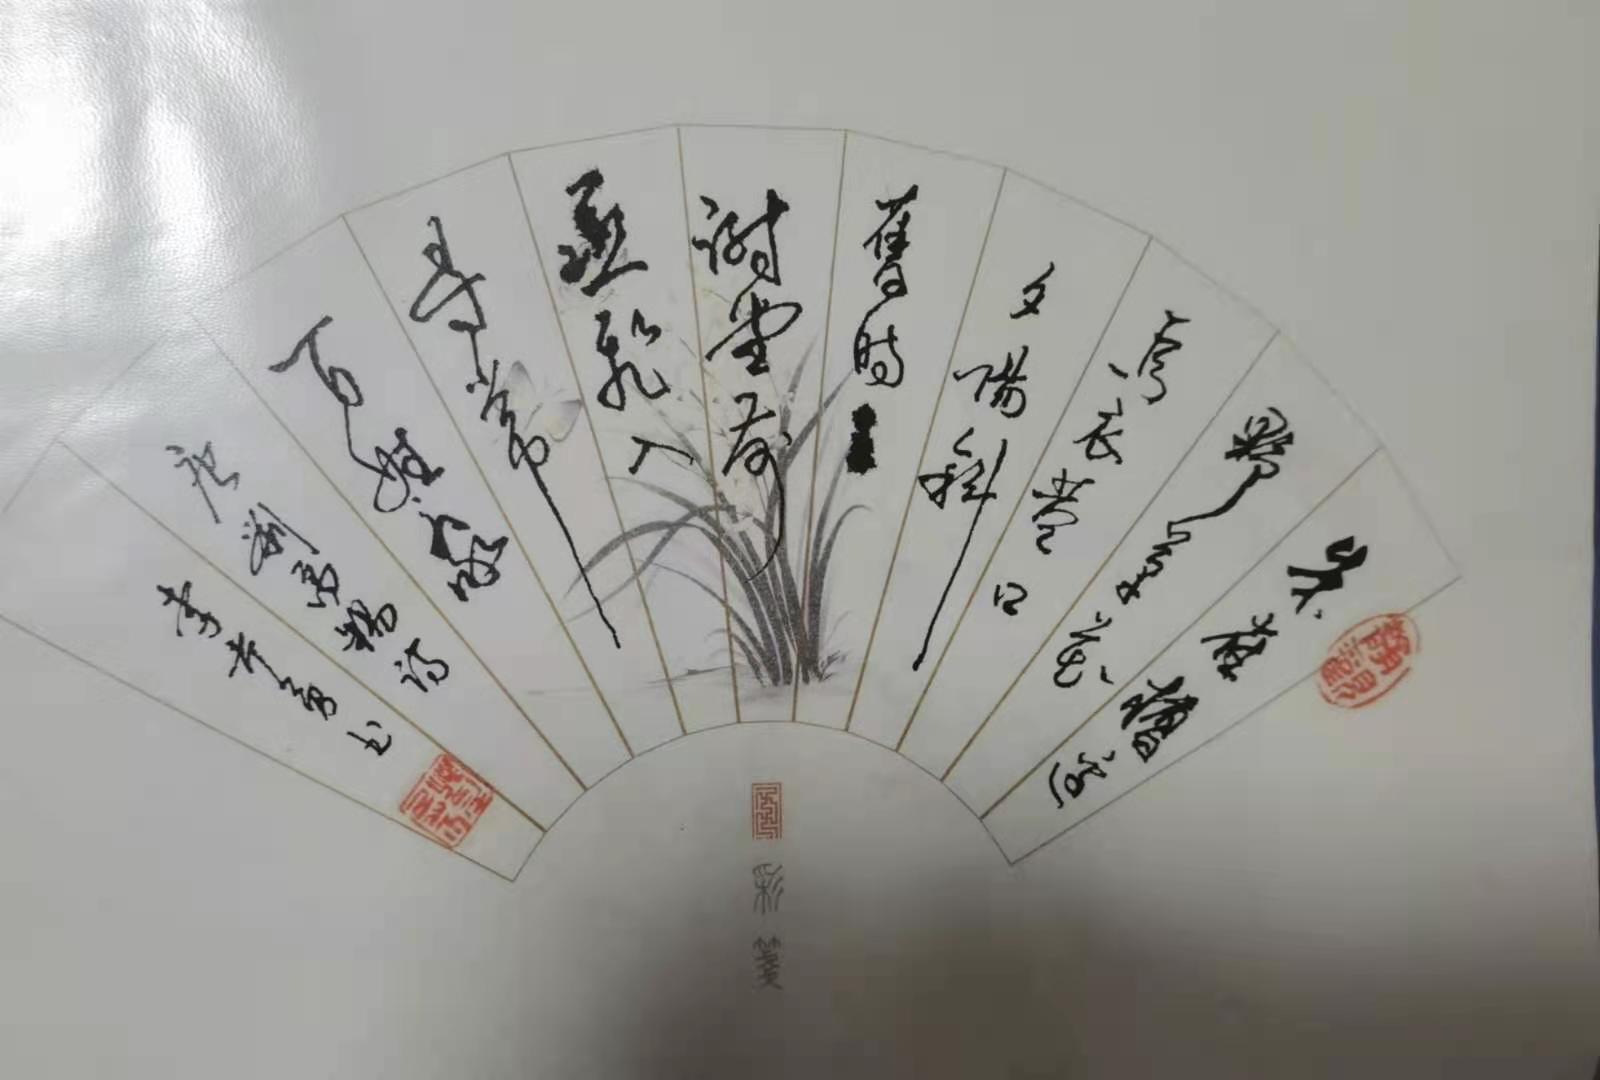 朱雀橋邊
野草花
烏衣巷口
夕陽斜
舊時王
謝堂前
燕飛入
尋常
百姓家
唐劉禹錫詩
李书
彩箋